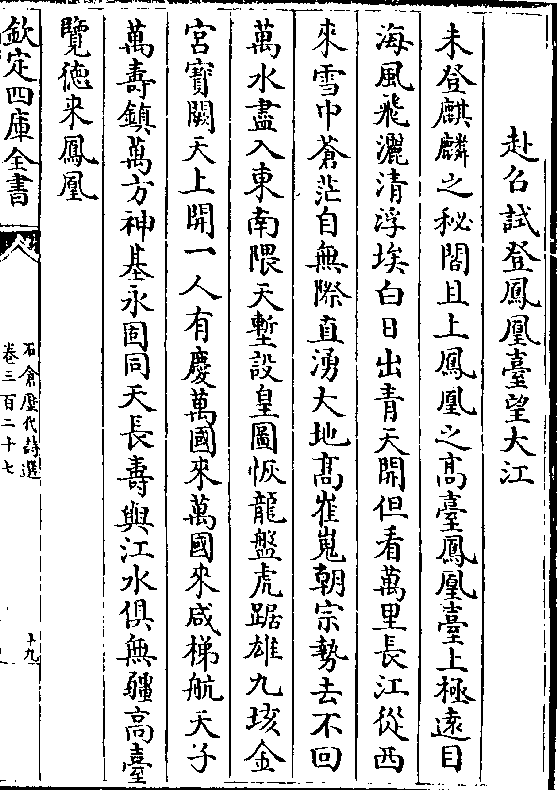 赴召試登鳳凰臺望大江
未登麒麟之秘閣且上鳳凰之髙臺鳳凰臺上極遠目
海風飛灑清浮埃白日出青天開但看萬里長江從西
來雪中蒼茫自無際直湧大地髙崔嵬朝宗勢去不回
萬水盡入東南隈天塹設皇圖恢龍盤虎踞雄九垓金
宮寶闕天上開一人有慶萬國來萬國來咸梯航天子
萬壽鎮萬方神基永固同天長壽與江水俱無疆高臺
覽德来鳳凰
欽定四庫全書
石倉歷代詩選
卷三百二十七
十九